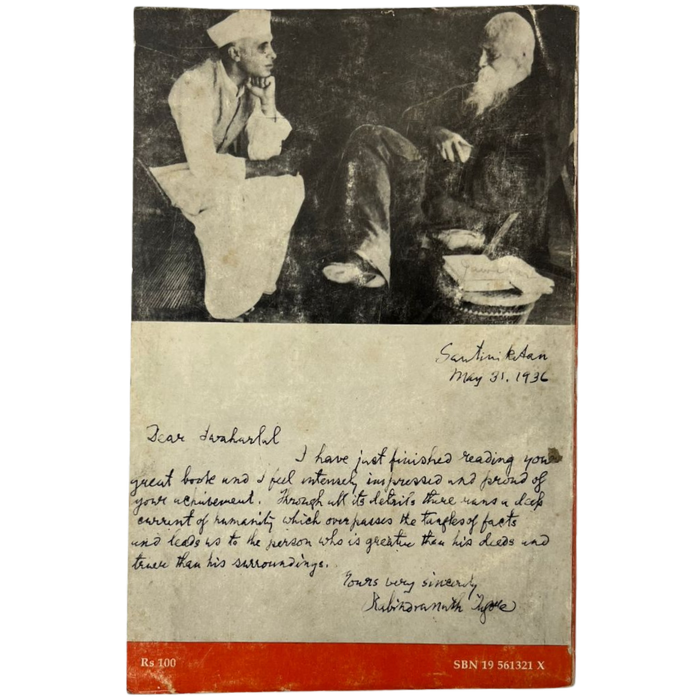 Santiniketan
May 31. 1936
Dear Jawaharlal
I have just finished reading your
great book and I feel intensely impressed and proud of
your achievement. Through all its details there runs a deep
current of humanity which overpasses the tangles of facts
and leads us to the person who is greater than his deeds and
truer than his surroundings.
Yours very sincerely
Rabindranath Tagore
Rs 100
SBN 19 561321 X